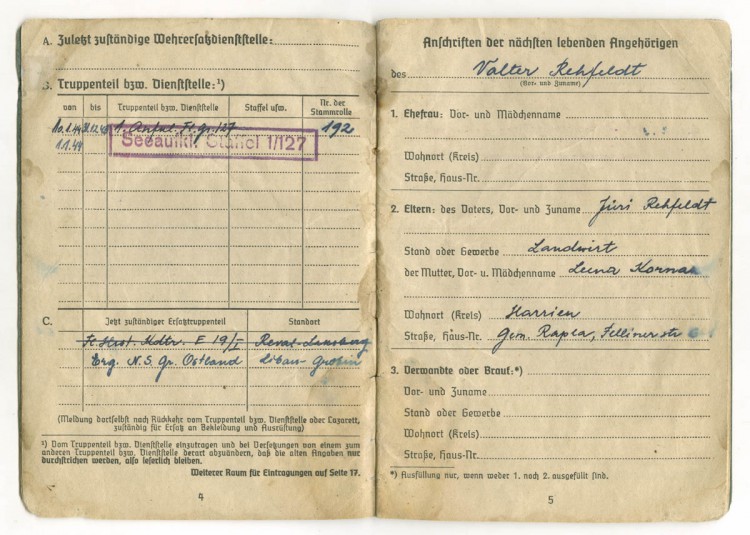 A. Zuletzt zuständige Wehrersatzdienststelle:
B. Truppenteil bzw. Dienststelle:¹)
von bis Truppenteil bzw. Dienststelle Staffel usw. Nr. der Stammrolle
1. 127 192
1.1.44 Seeaufkl. Staffel 1/127
C. Jetzt zuständiger Ersatztruppenteil Standort
E 19/I Reval
Erg. N.S. Gr. Ostland Libau-Grobin
(Meldung dortselbst nach Rückkehr vom Truppenteil bzw. Dienststelle oder Lazarett,
zuständig für Ersatz an Bekleidung und Ausrüstung)
¹) Vom Truppenteil bzw. Dienststelle einzutragen und bei Versetzungen von einem zum
anderen Truppenteil bzw. Dienststelle derart abzuändern, daß die alten Angaben nur
durchstrichen werden, also leserlich bleiben.
Weiterer Raum für Eintragungen auf Seite 17.
4
Anschriften der nächsten lebenden Angehörigen
des Valter Rehfeldt
(Vor- und Zuname)
1. Ehefrau: Vor- und Mädchenname
Wohnort (Kreis)
Straße, Haus-Nr.
2. Eltern: des Vaters, Vor- und Zuname Jüri Rehfeldt
Stand oder Gewerbe Landwirt
der Mutter, Vor- u. Mädchenname Leena
Wohnort (Kreis) Harrien
Straße, Haus-Nr. Gem. Rapla, Felliner str
3. Verwandte oder Braut:*)
Vor- und Zuname
Stand oder Gewerbe
Wohnort (Kreis)
Straße, Haus-Nr.
*) Ausfüllung nur, wenn weder 1. noch 2. ausgefüllt sind.
5